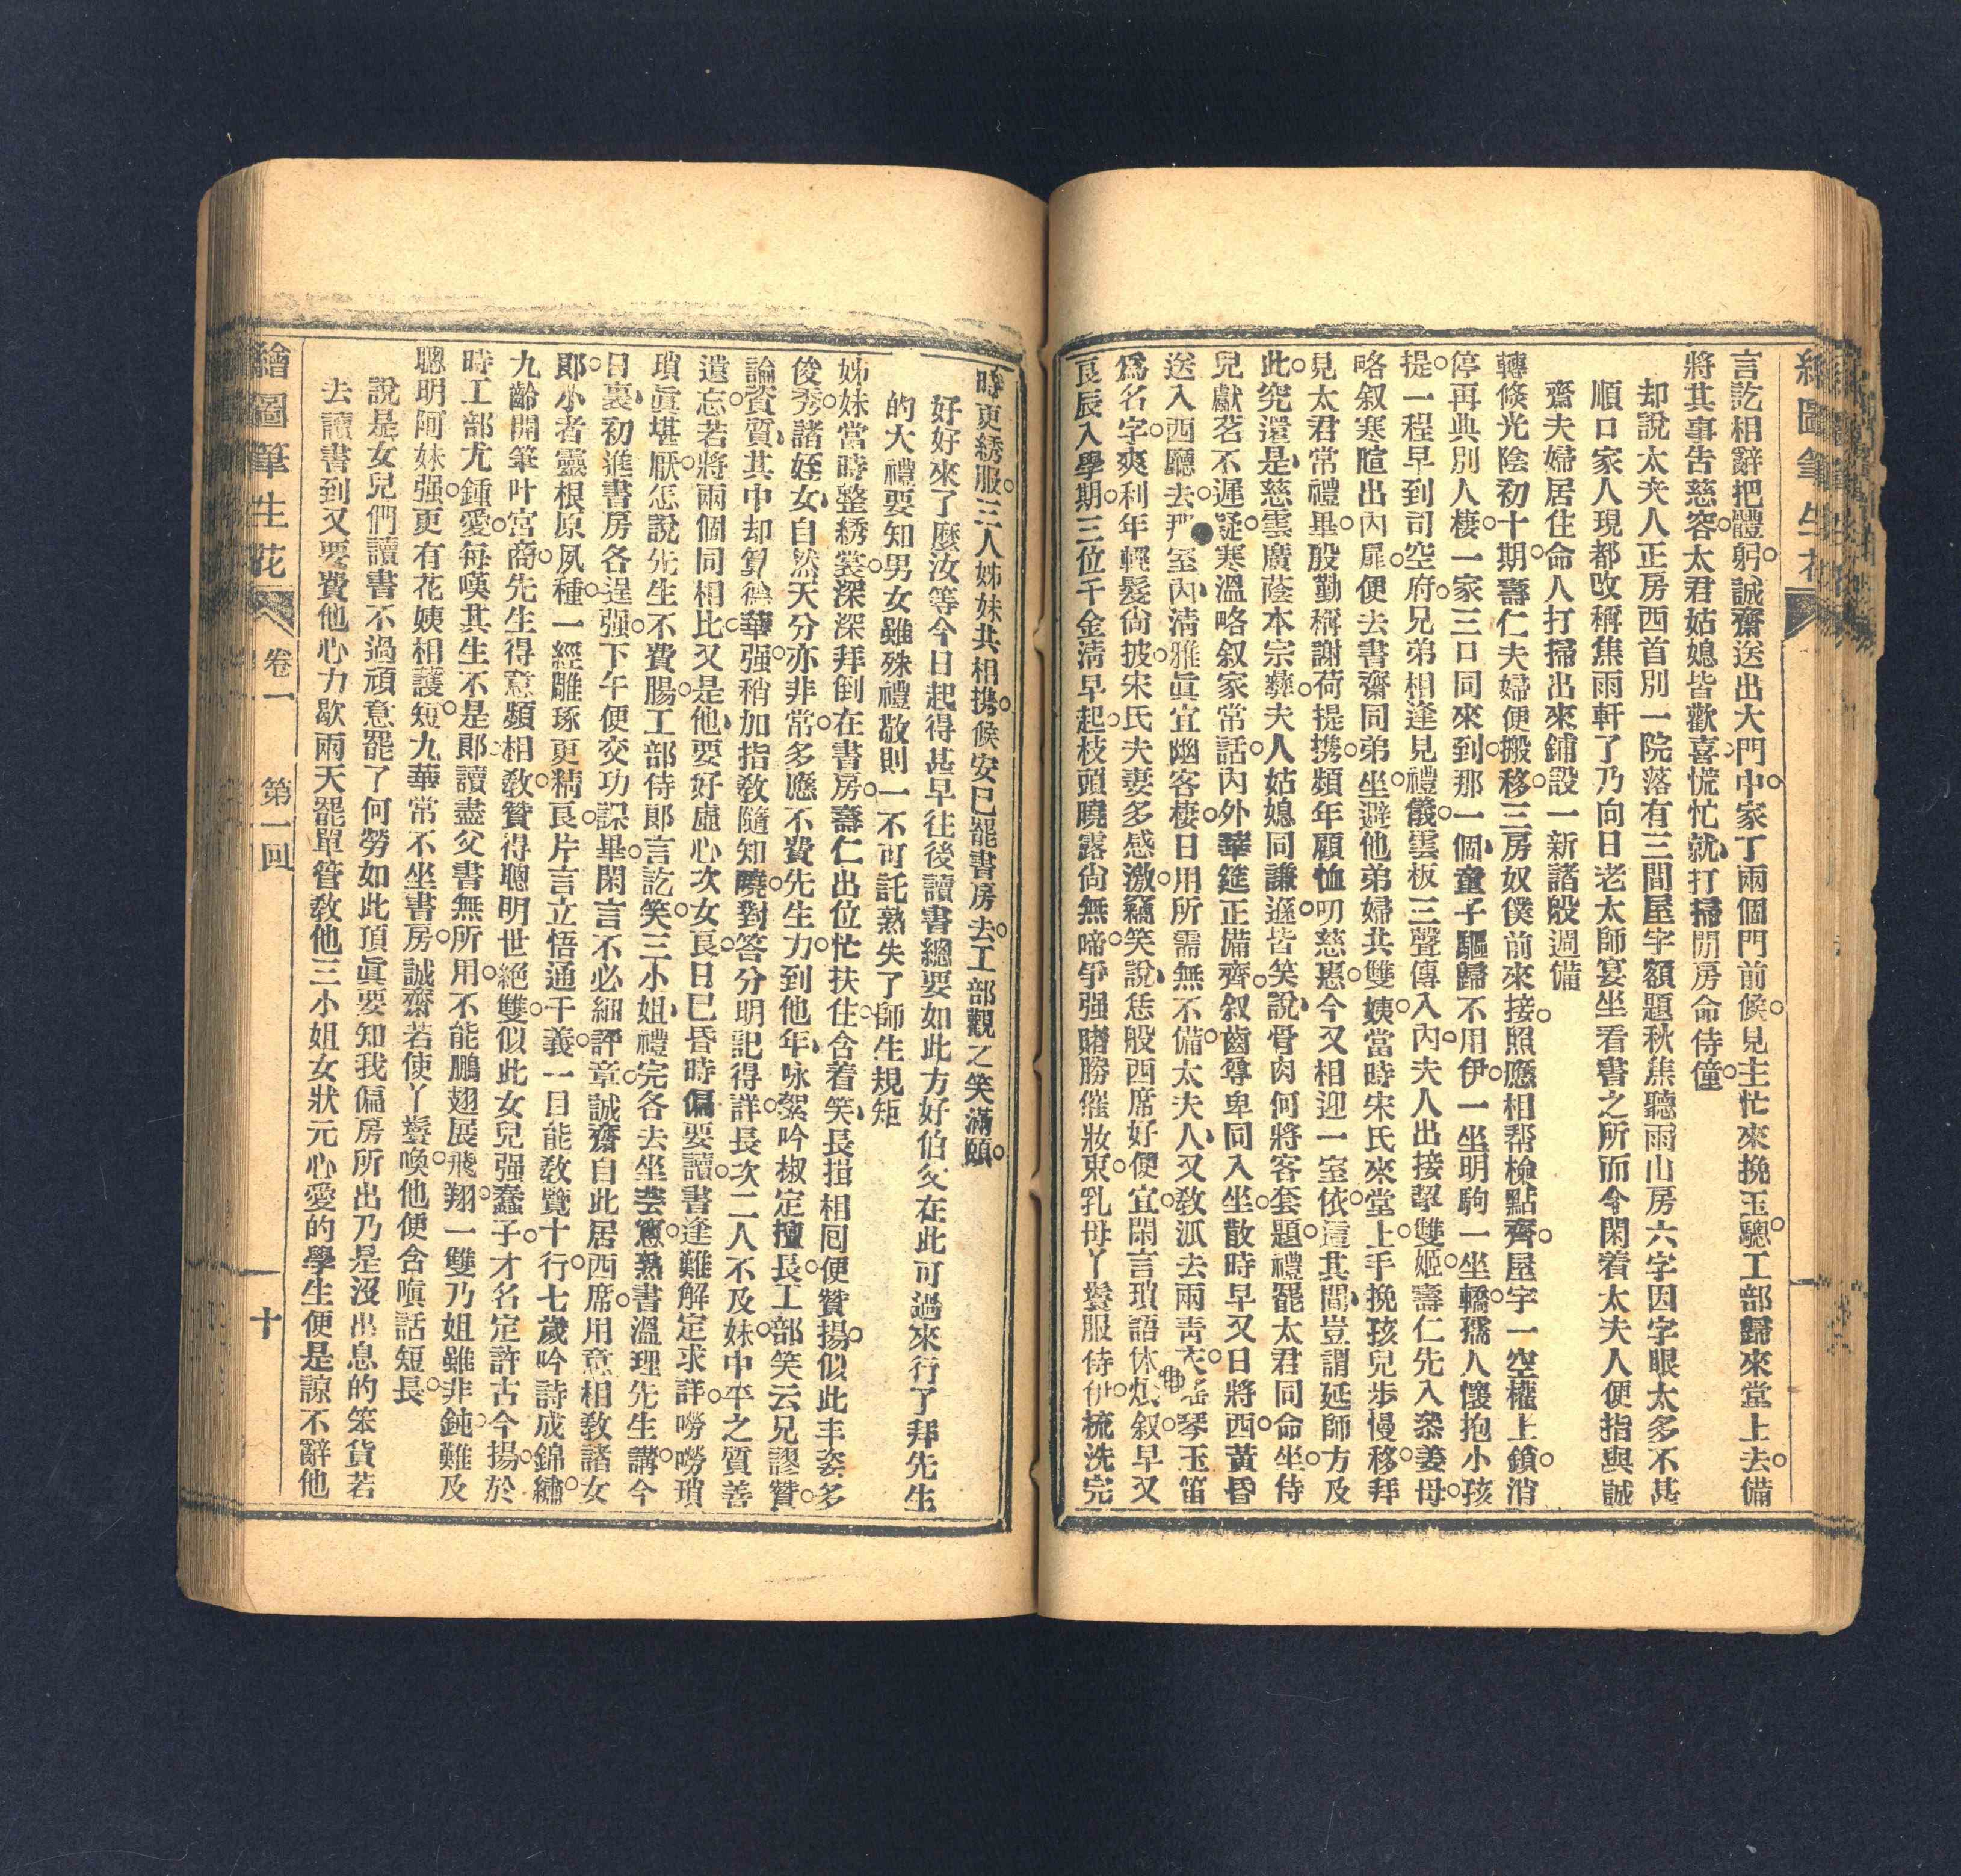 繪圖筆生花
言訖相辭把體躬誠齋送出大門中家丁兩個門前候見主忙來挽玉驄工部歸來堂上去備
將其事告慈容太君姑媳皆歡喜慌忙就打掃閒房命侍僮
却說太夫人正房西首別一院落有三間屋宇額題秋蕉聽雨山房六字因字眼太多不甚
順口家人現都改稱焦雨軒了乃向日老太師宴坐看書之所而今閑着太夫人便指與誠
齋夫婦居住命人打掃出來鋪設一新諸般週備
轉倐光陰初十期壽仁夫婦便搬移三房奴僕前來接照應相帮檢點齊屋宇一空權上鎖消
停再典別人棲一家三口同來到那一個童子驅歸不用伊一坐明駒一坐轎孺人懷抱小孩
提一程早到司空府兄弟相逢見禮儀雲板三聲傳入內夫人出接挈雙姬壽仁先入叅姜母
略叙寒暄出內扉便去書齋同弟坐避他弟婦共雙姨當時宋氏來堂上手挽孩兒步慢移拜
見太君常禮畢殷勤稱謝荷提携頻年顧恤叨慈惠今又相迎一室依這其間豈謂延師方及
此究還是慈雲廣蔭本宗彝夫人姑媳同謙遜皆笑說骨肉何將客套題禮罷太君同命坐侍
兒獻茗不遲疑寒溫略叙家常話內外華筵正備齊叙齒尊卑同入坐散時早又日將西黃昏
送入西廳去 室內清雅眞宜幽客棲日用所需無不備太夫人又敎派去兩靑衣瑤琴玉笛
爲名字爽利年輕髮尙披宋氏夫妻多感激竊笑說恁般西席好便宜閑言瑣語休煩叙早又
良辰入學期三位千金淸早起枝頭曉露尙無啼爭强賭勝催妝束乳母丫鬟服侍伊梳洗完
時更綉服三人姊妹共相携候安已罷書房去工部觀之笑滿頤
好好來了麽汝等今日起得甚早往後讀書總要如此方好伯父在此可過來行了拜先生
的大禮要知男女雖殊禮敬則一不可託熟失了師生規矩
姊妹當時整綉裳深深拜倒在書房壽仁出位忙扶住含着笑長揖相囘便贊揚似此丰姿多
俊秀諸姪女自然天分亦非常多應不費先生力到他年咏絮吟椒定擅長工部笑云兄謬贊
論資質其中却算德華强稍加指敎隨知曉對答分明記得詳長次二人不及妹中平之質善
遺忘若將兩個同相比又是他要好虛心次女良日已昏時偏要讀書逢難解定求詳嘮嘮瑣
瑣眞堪厭怎說先生不費腸工部侍郞言訖笑三小姐禮完各去坐芸窻熟書溫理先生講今
日裏初進書房各逞强下午便交功課畢閑言不必細評章誠齋自此居西席用意相敎諸女
郞小者靈根原夙種一經雕琢更精良片言立悟通千義一目能敎覽十行七歲吟詩成錦繡
九齡開筆叶宮商先生得意頻相敎贊得聰明世絕雙似此女兒强蠢子才名定許古今揚於
時工部尤鍾愛每嘆其生不是郞讀盡父書無所用不能鵬翅展飛翔一雙乃姐雖非鈍難及
聰明阿妹强更有花姨相護短九華常不坐書房誠齋若使丫鬟喚他便含嗔話短長
說是女兒們讀書不過頑意罷了何勞如此頂眞要知我偏房所出乃是沒出息的笨貨若
去讀書到又要費他心力歇兩天罷單管敎他三小姐女狀元心愛的學生便是諒不辭他
繪圖筆生花 卷一 第一回 十